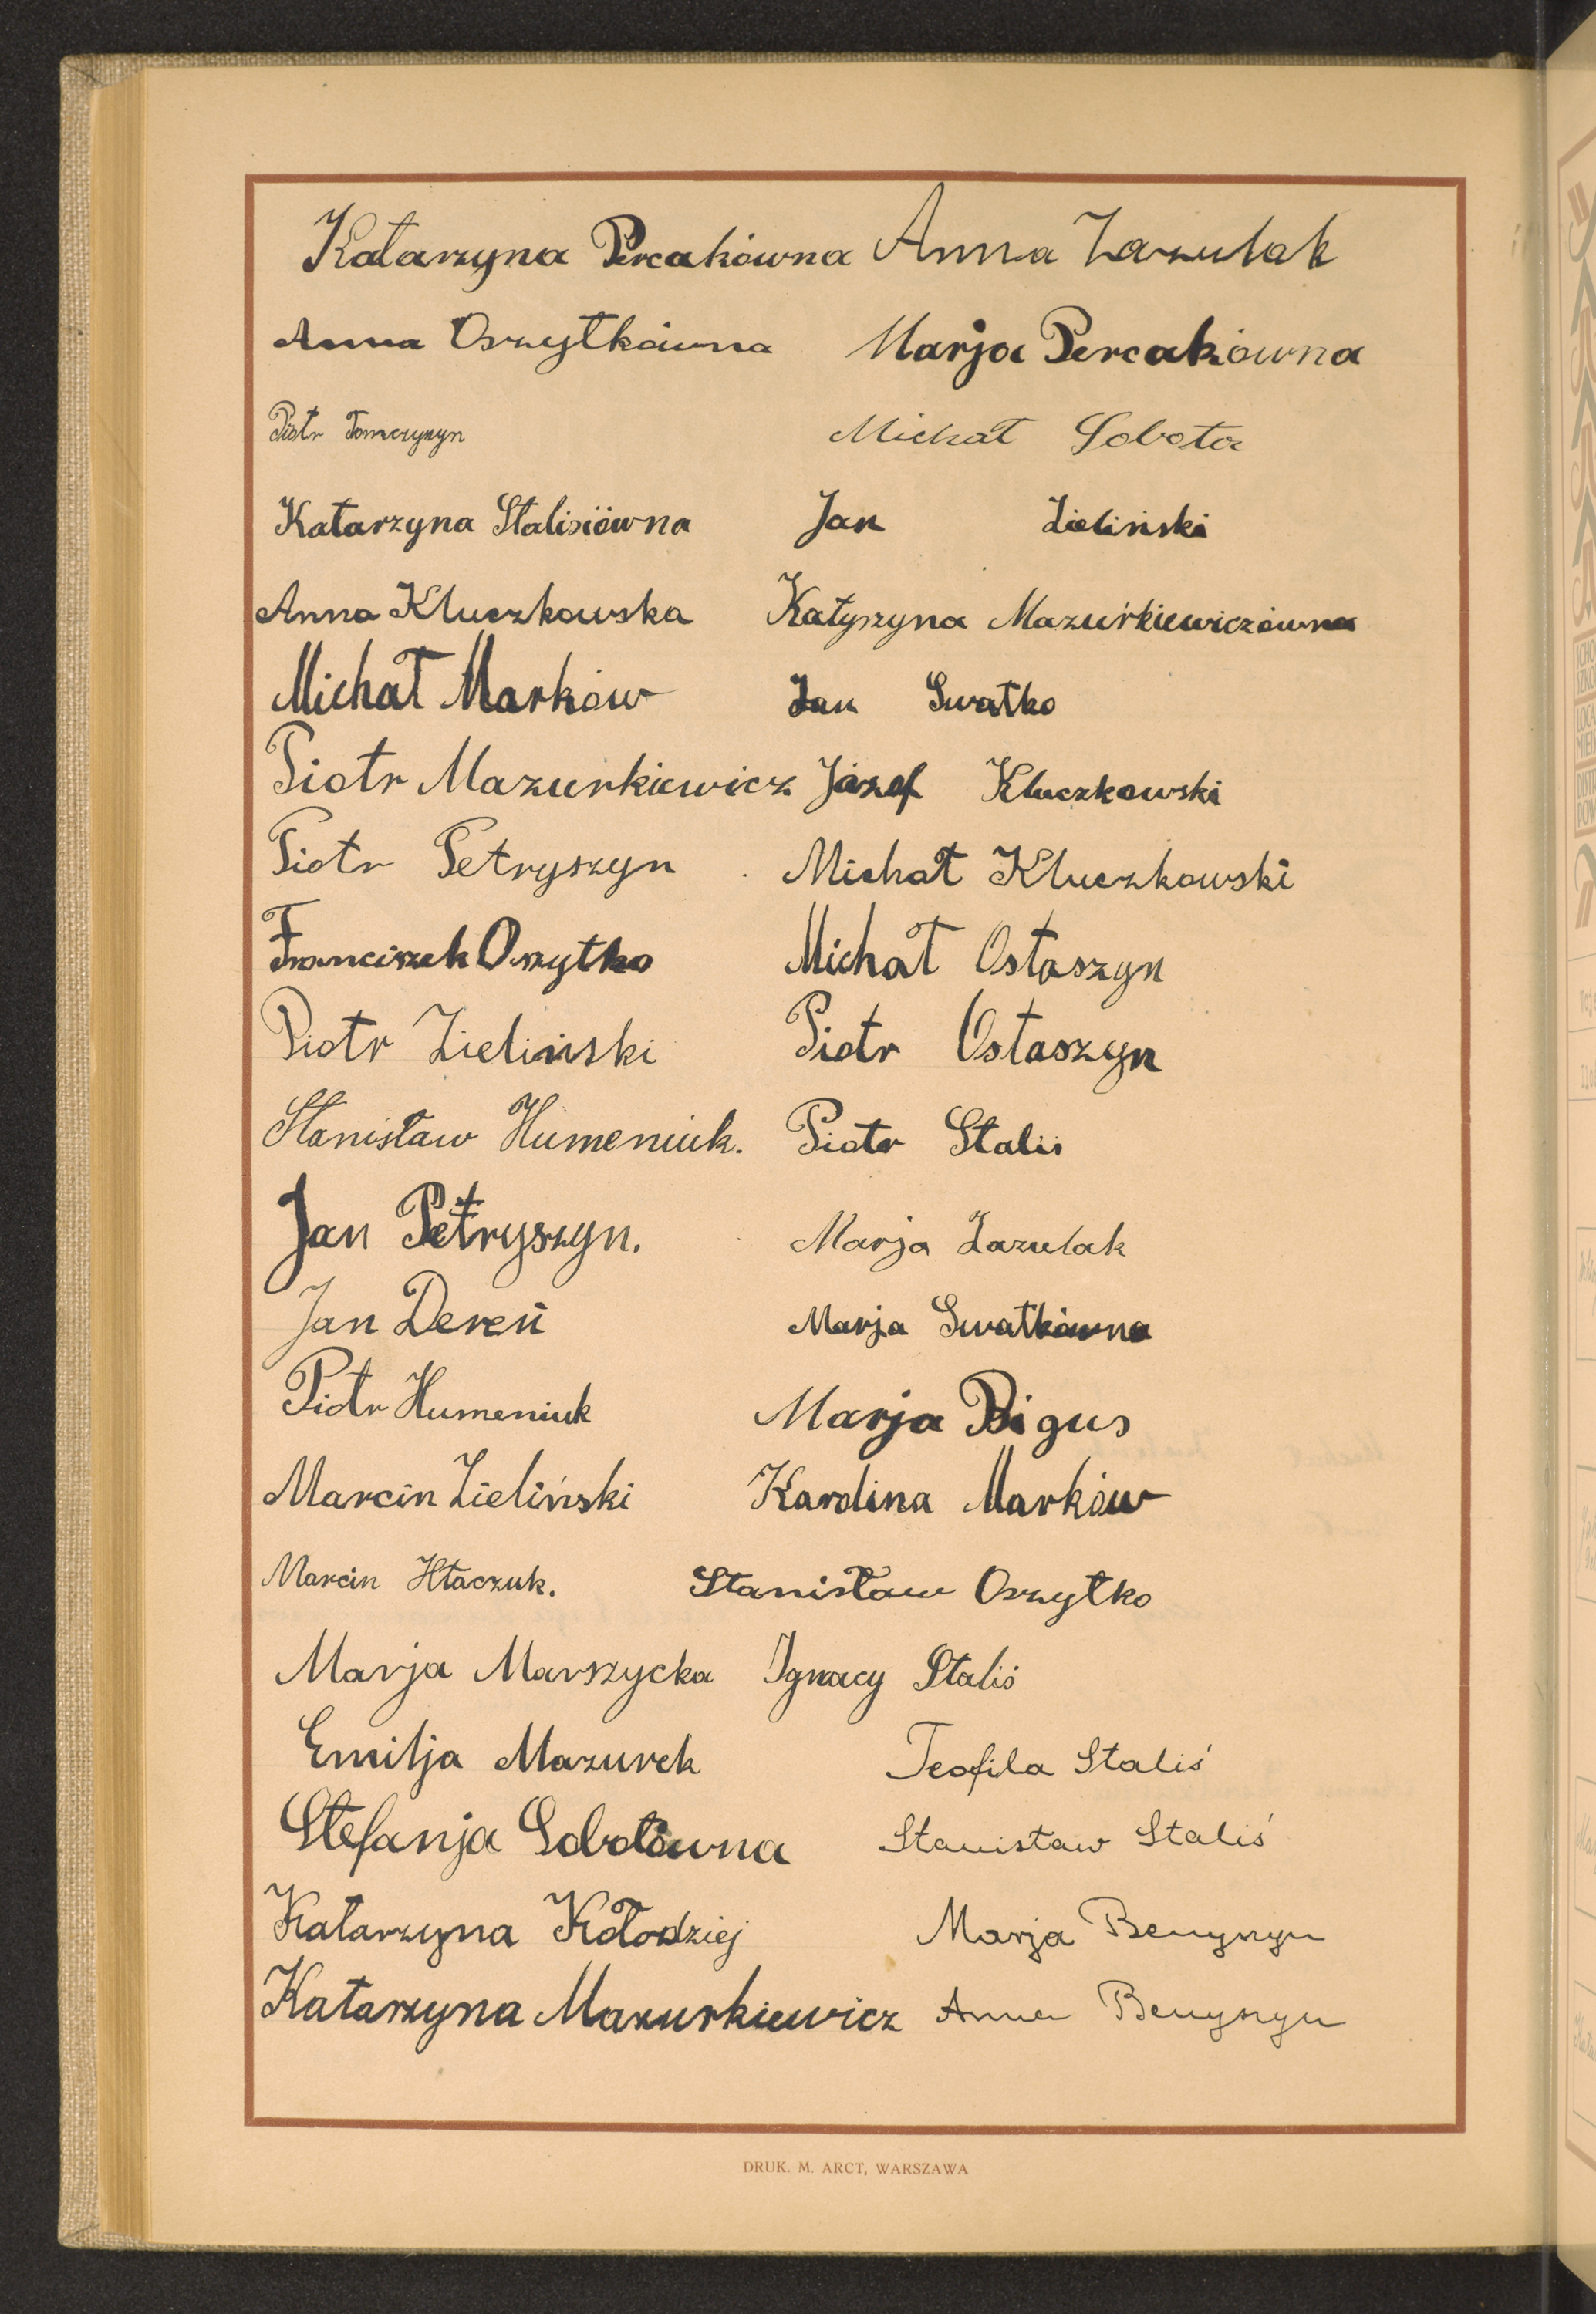 Katarzyna Percakówna Anna Zazulak
Anna Oszytkówna Marja Percakówna
Piotr Tomczyszyn Michał Sobota
Katarzyna Stalisiówna Jan Zieliński
Anna Kluczkowska Katyszyna Mazurkiewiczówna
Michał Markow Jan Swatko
Piotr Mazurkiewicz Józef Kluczkowski
Piotr Petryszyn Michał Kluczkowski
Franciszek Oszytko Michał Ostaszyn
Piotr Zieliński Piotr Ostaszyn
Stanisław Humeniuk. Piotr Staliś
Jan Petryszyn. Marja Zazulak
Jan Dereń Marja Swatkówna
Piotr Humeniuk Marja Bigus
Marcin Zieliński Karolina Marków
Marcin Hłaczuk. Stanisław Oszytko
Marja Marszycka Ignacy Staliś
Emilja Mazurek Teofila Staliś
Stefanja Sobotówna Stanisław Staliś
Katarzyna Kołodziej Marja
Katarzyna Mazurkiewicz Anna
DRUK. M. ARCT, WARSZAWA